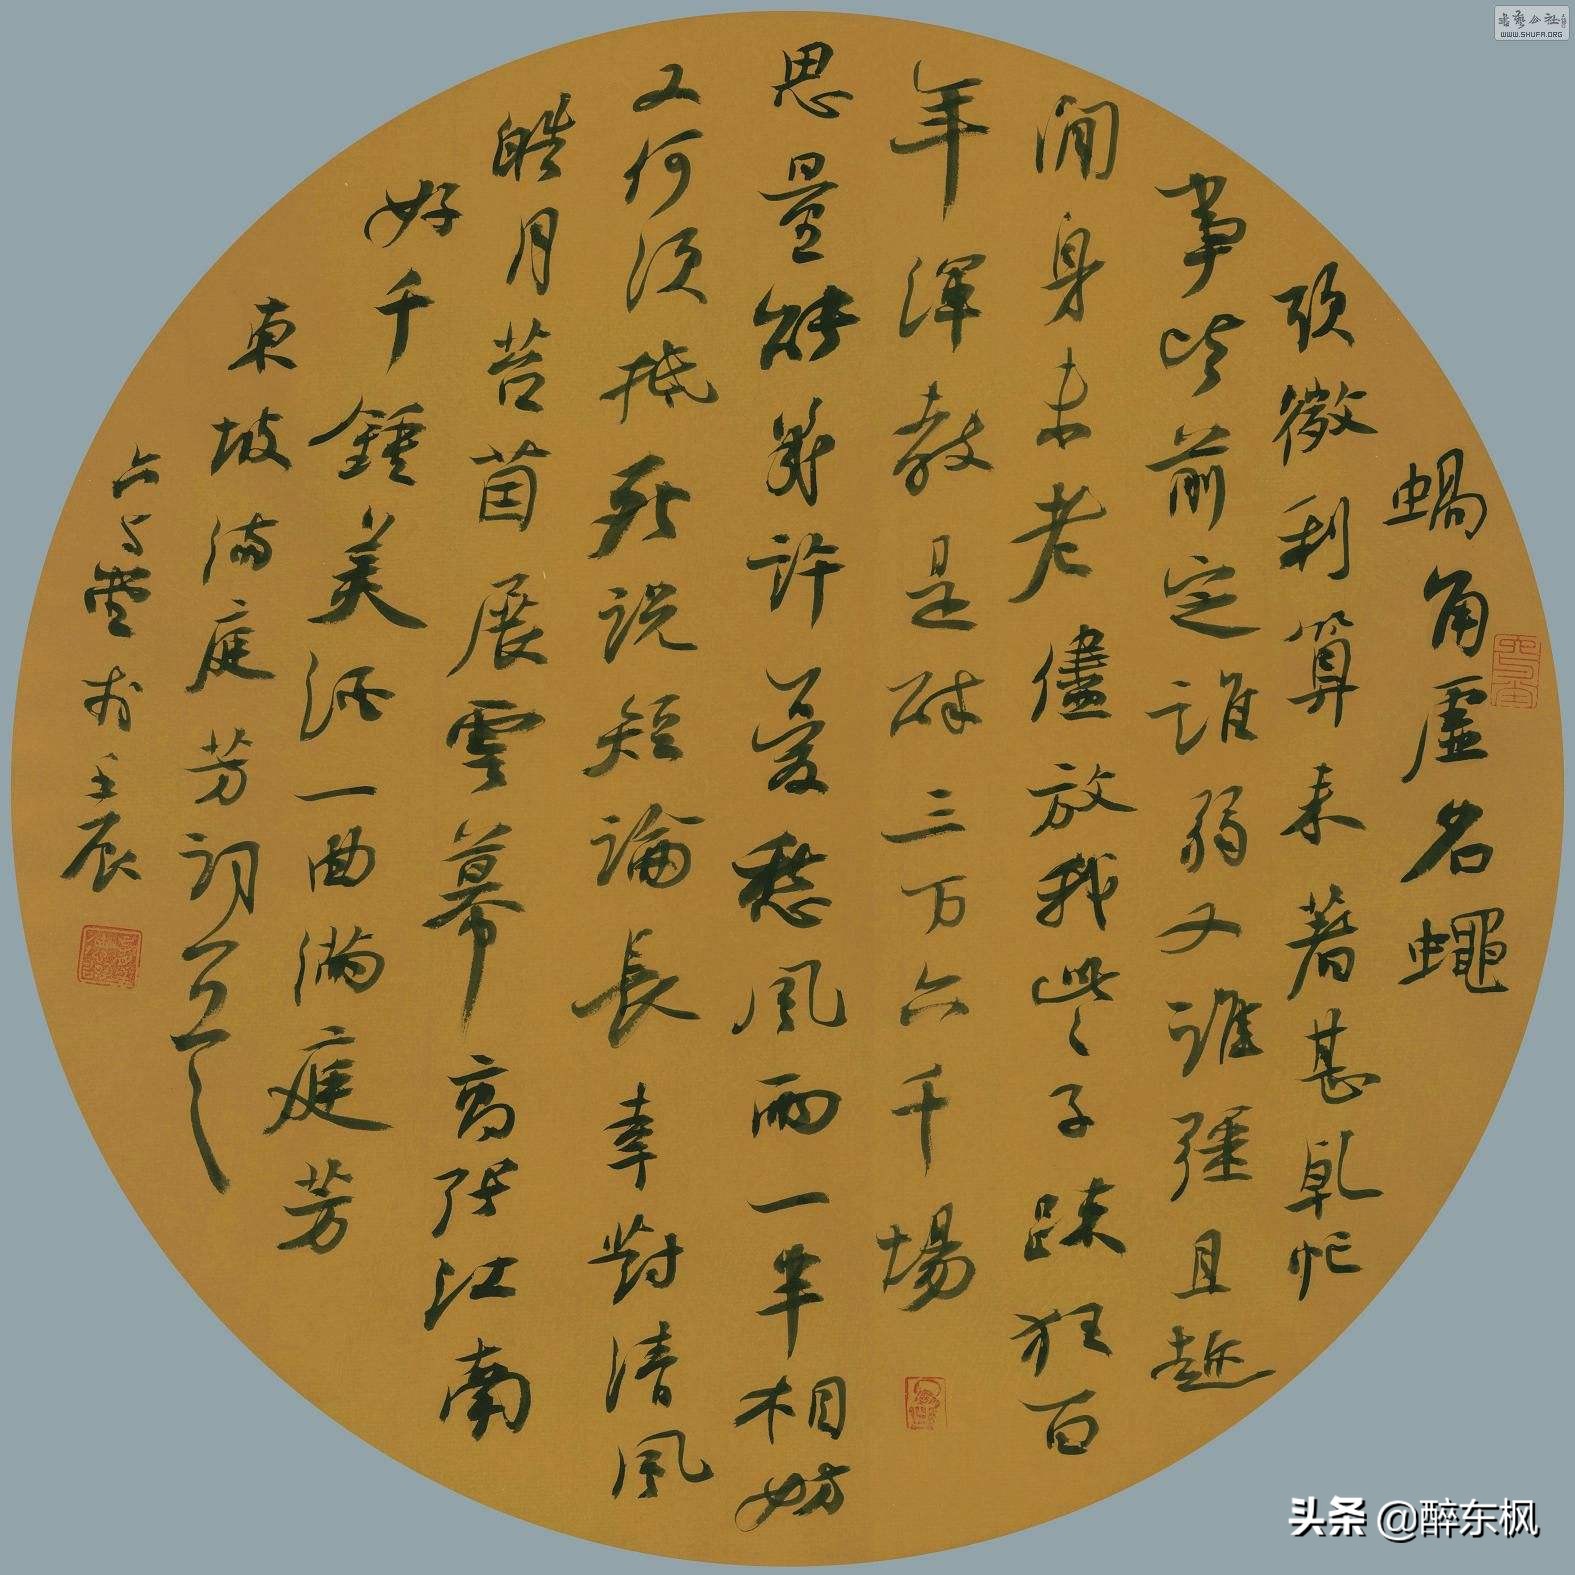 蝸角虛名蠅
頭微利算来著甚乹忙
事皆前定誰弱又誰彊且趂
閒身未老儘放我些子疎狂百
年渾教是醉三万六千場
思量能幾許憂愁風雨一半相妨
又何須抵死說短論長幸對清風
皓月苔茵展雲幕高張江南
好千鍾美酒一曲滿庭芳
東坡滿庭芳詞
壬辰
WWW.SHUFA.ORG
头条 @醉东枫